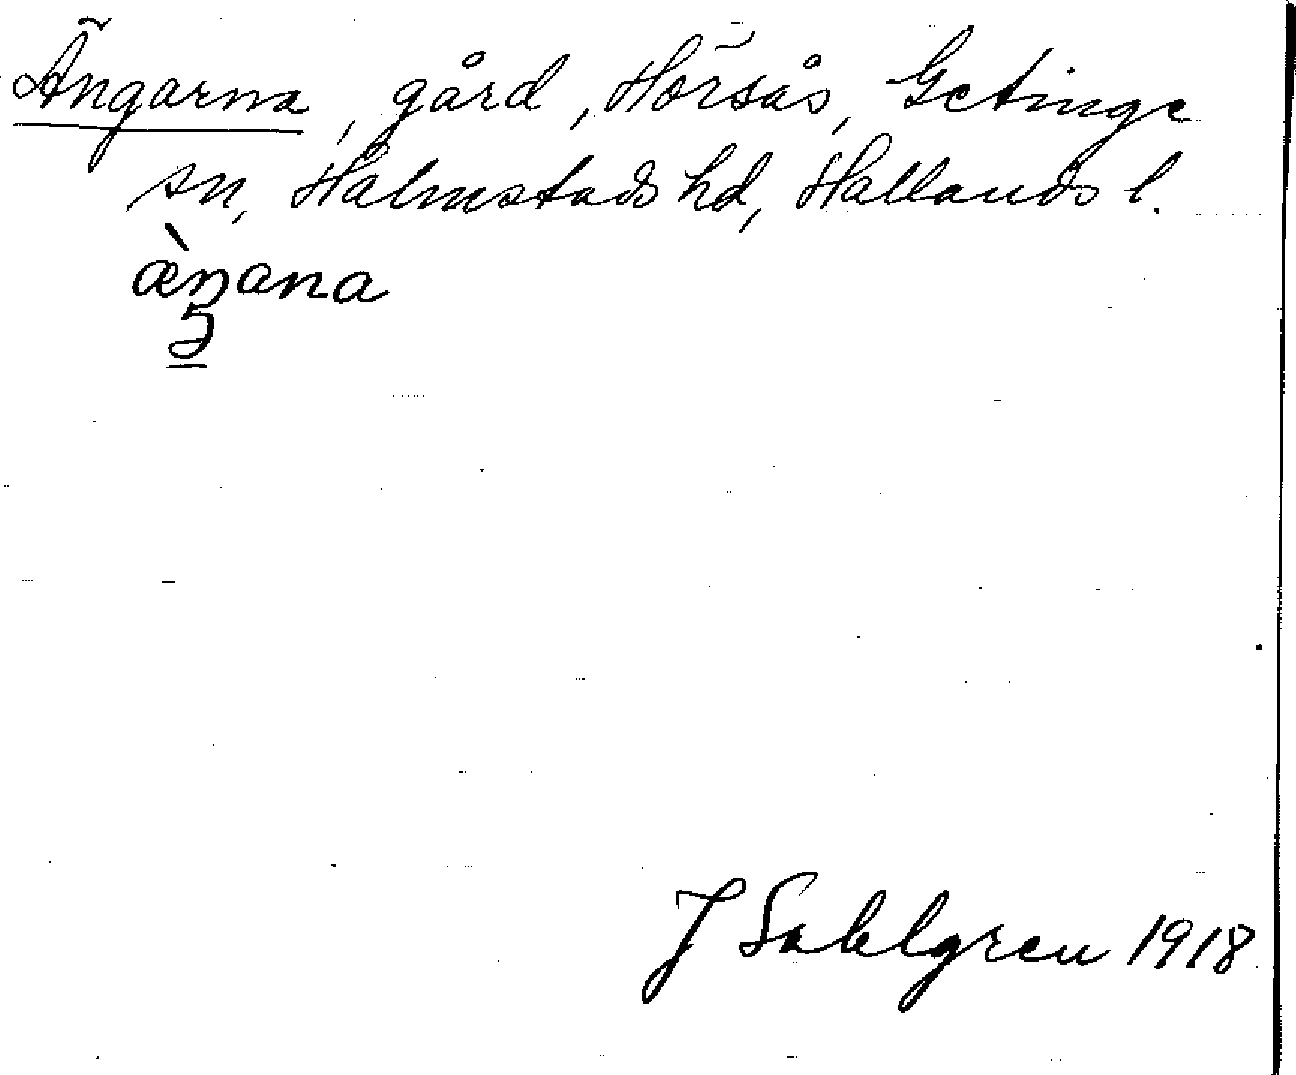 Ängarna, gård, Hörsås, Getinge
sn, Halmstads hd, Hallands l.
æ̀ŋana
J Sahlgren 1918